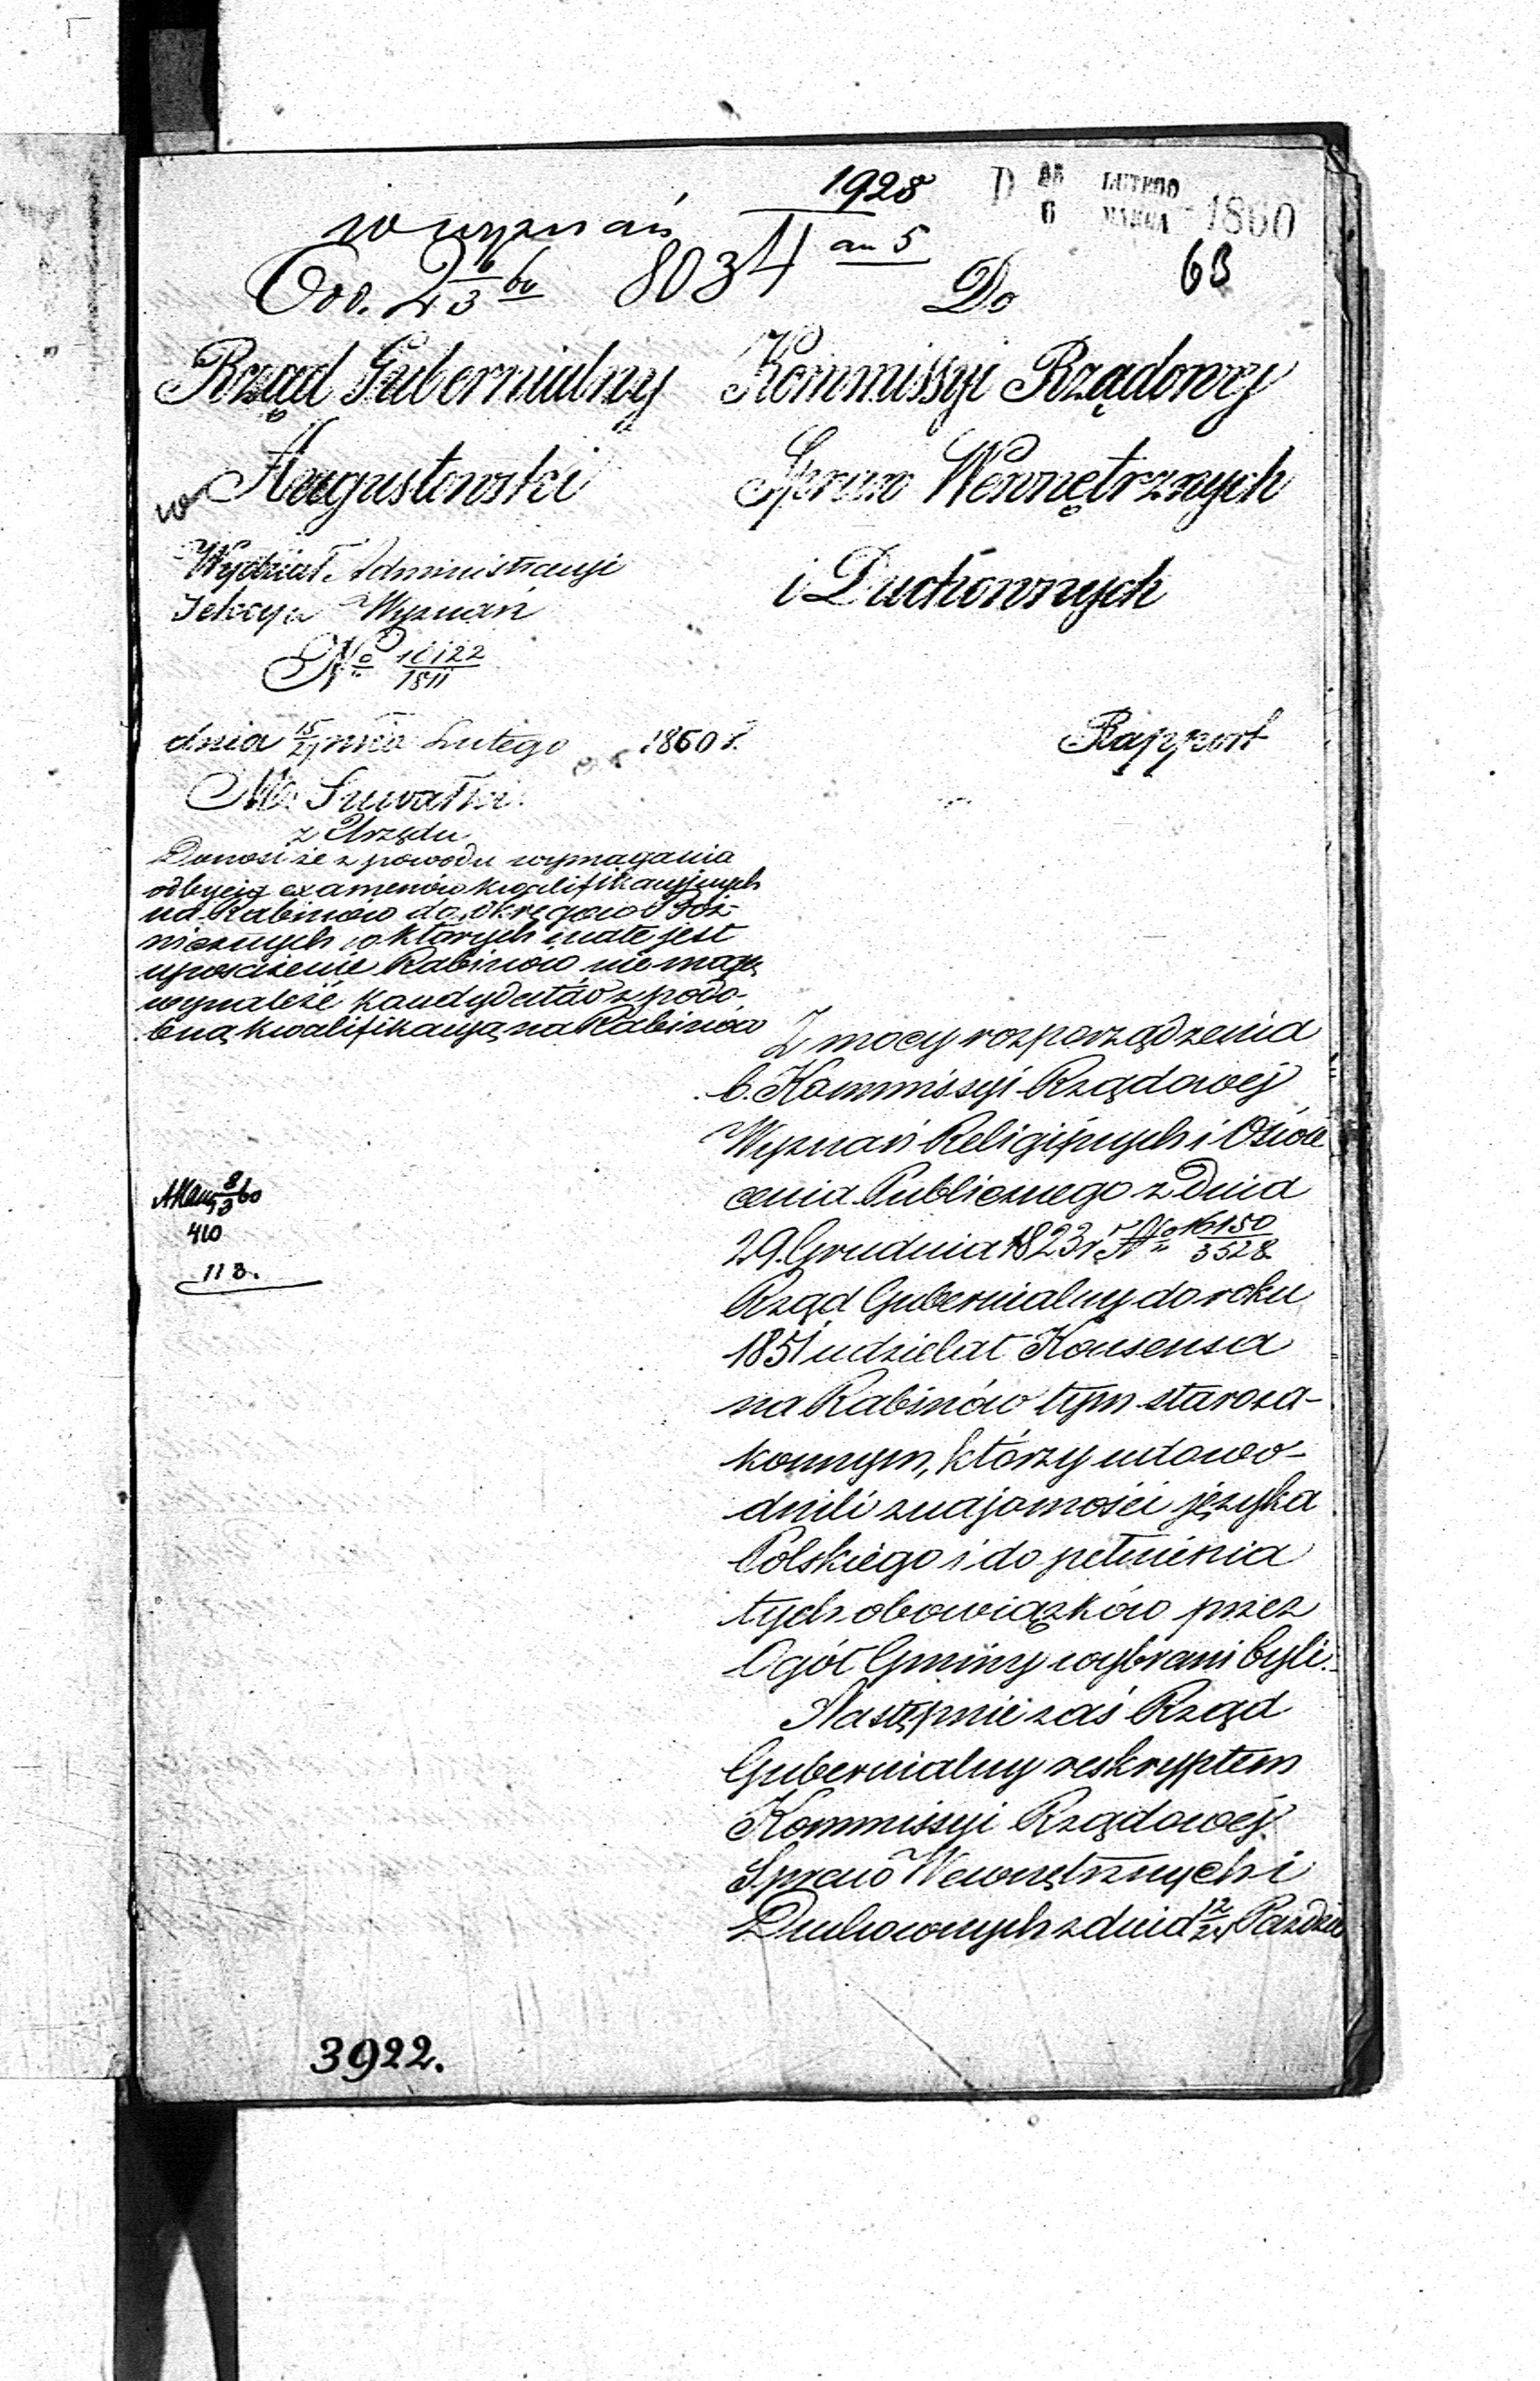 1928
D 25 LUTEGO
6 MARCA 1860
wyznań
Odd. 2 6/3 60 8034 an 5
63
Do
Rząd Gubernialny
Augustowski
w
Wydział Administracyi
Sekcya Wyznań
No 10122/1811
dnia 15/27 mca Lutego 1860 r.
M. Suwałki
z Urzędu
Donosi że z powodu wymagania
odbycia examenów kwalifikacyjnych
na Rabinów do okręgów Boż-
nicznych w których małe jest
uposażenie Rabinów nie mogą
wynaleźć kandydatów z podo-
bną kwalifikacyą na Rabinów
8/3 60
410
113.
Kommissyi Rządowej
Spraw Wewnętrznych
i Duchownych
Rapport
Z mocy rozporządzenia
b. Kommissyi Rządowej
Wyznań Religijnych i Oświe
cenia Publicznego z dnia
29. Grudnia 1823 r. No 16150/3528
Rząd Gubernialny do roku
1851 udzielał Konsensa
na Rabinów tym staroza-
konnym, którzy udowo-
dnili znajomości języka
Polskiego i do pełnienia
tych obowiązków przez
Ogół Gminy wybrani byli.
Następnie zaś Rząd
Gubernialny reskryptem
Kommissyi Rządowej
Spraw Wewnętrznych i
Duchownych z dnia 12/24 Paździe
3922.